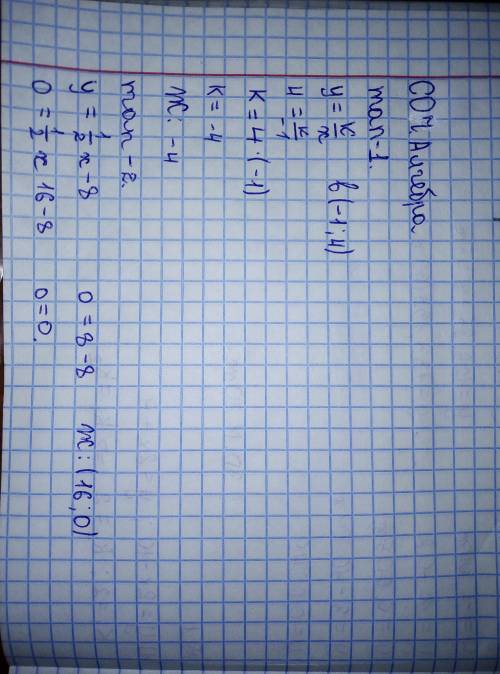 СОЧ Алгебра
тап-1.
y = k/x   B(-1;4)
4 = k/-1
k = 4·(-1)
k = -4
Ж: -4
тап-2.
y = 1/2 x - 8   0 = 8-8   Ж: (16;0)
0 = 1/2 x 16-8   0=0.